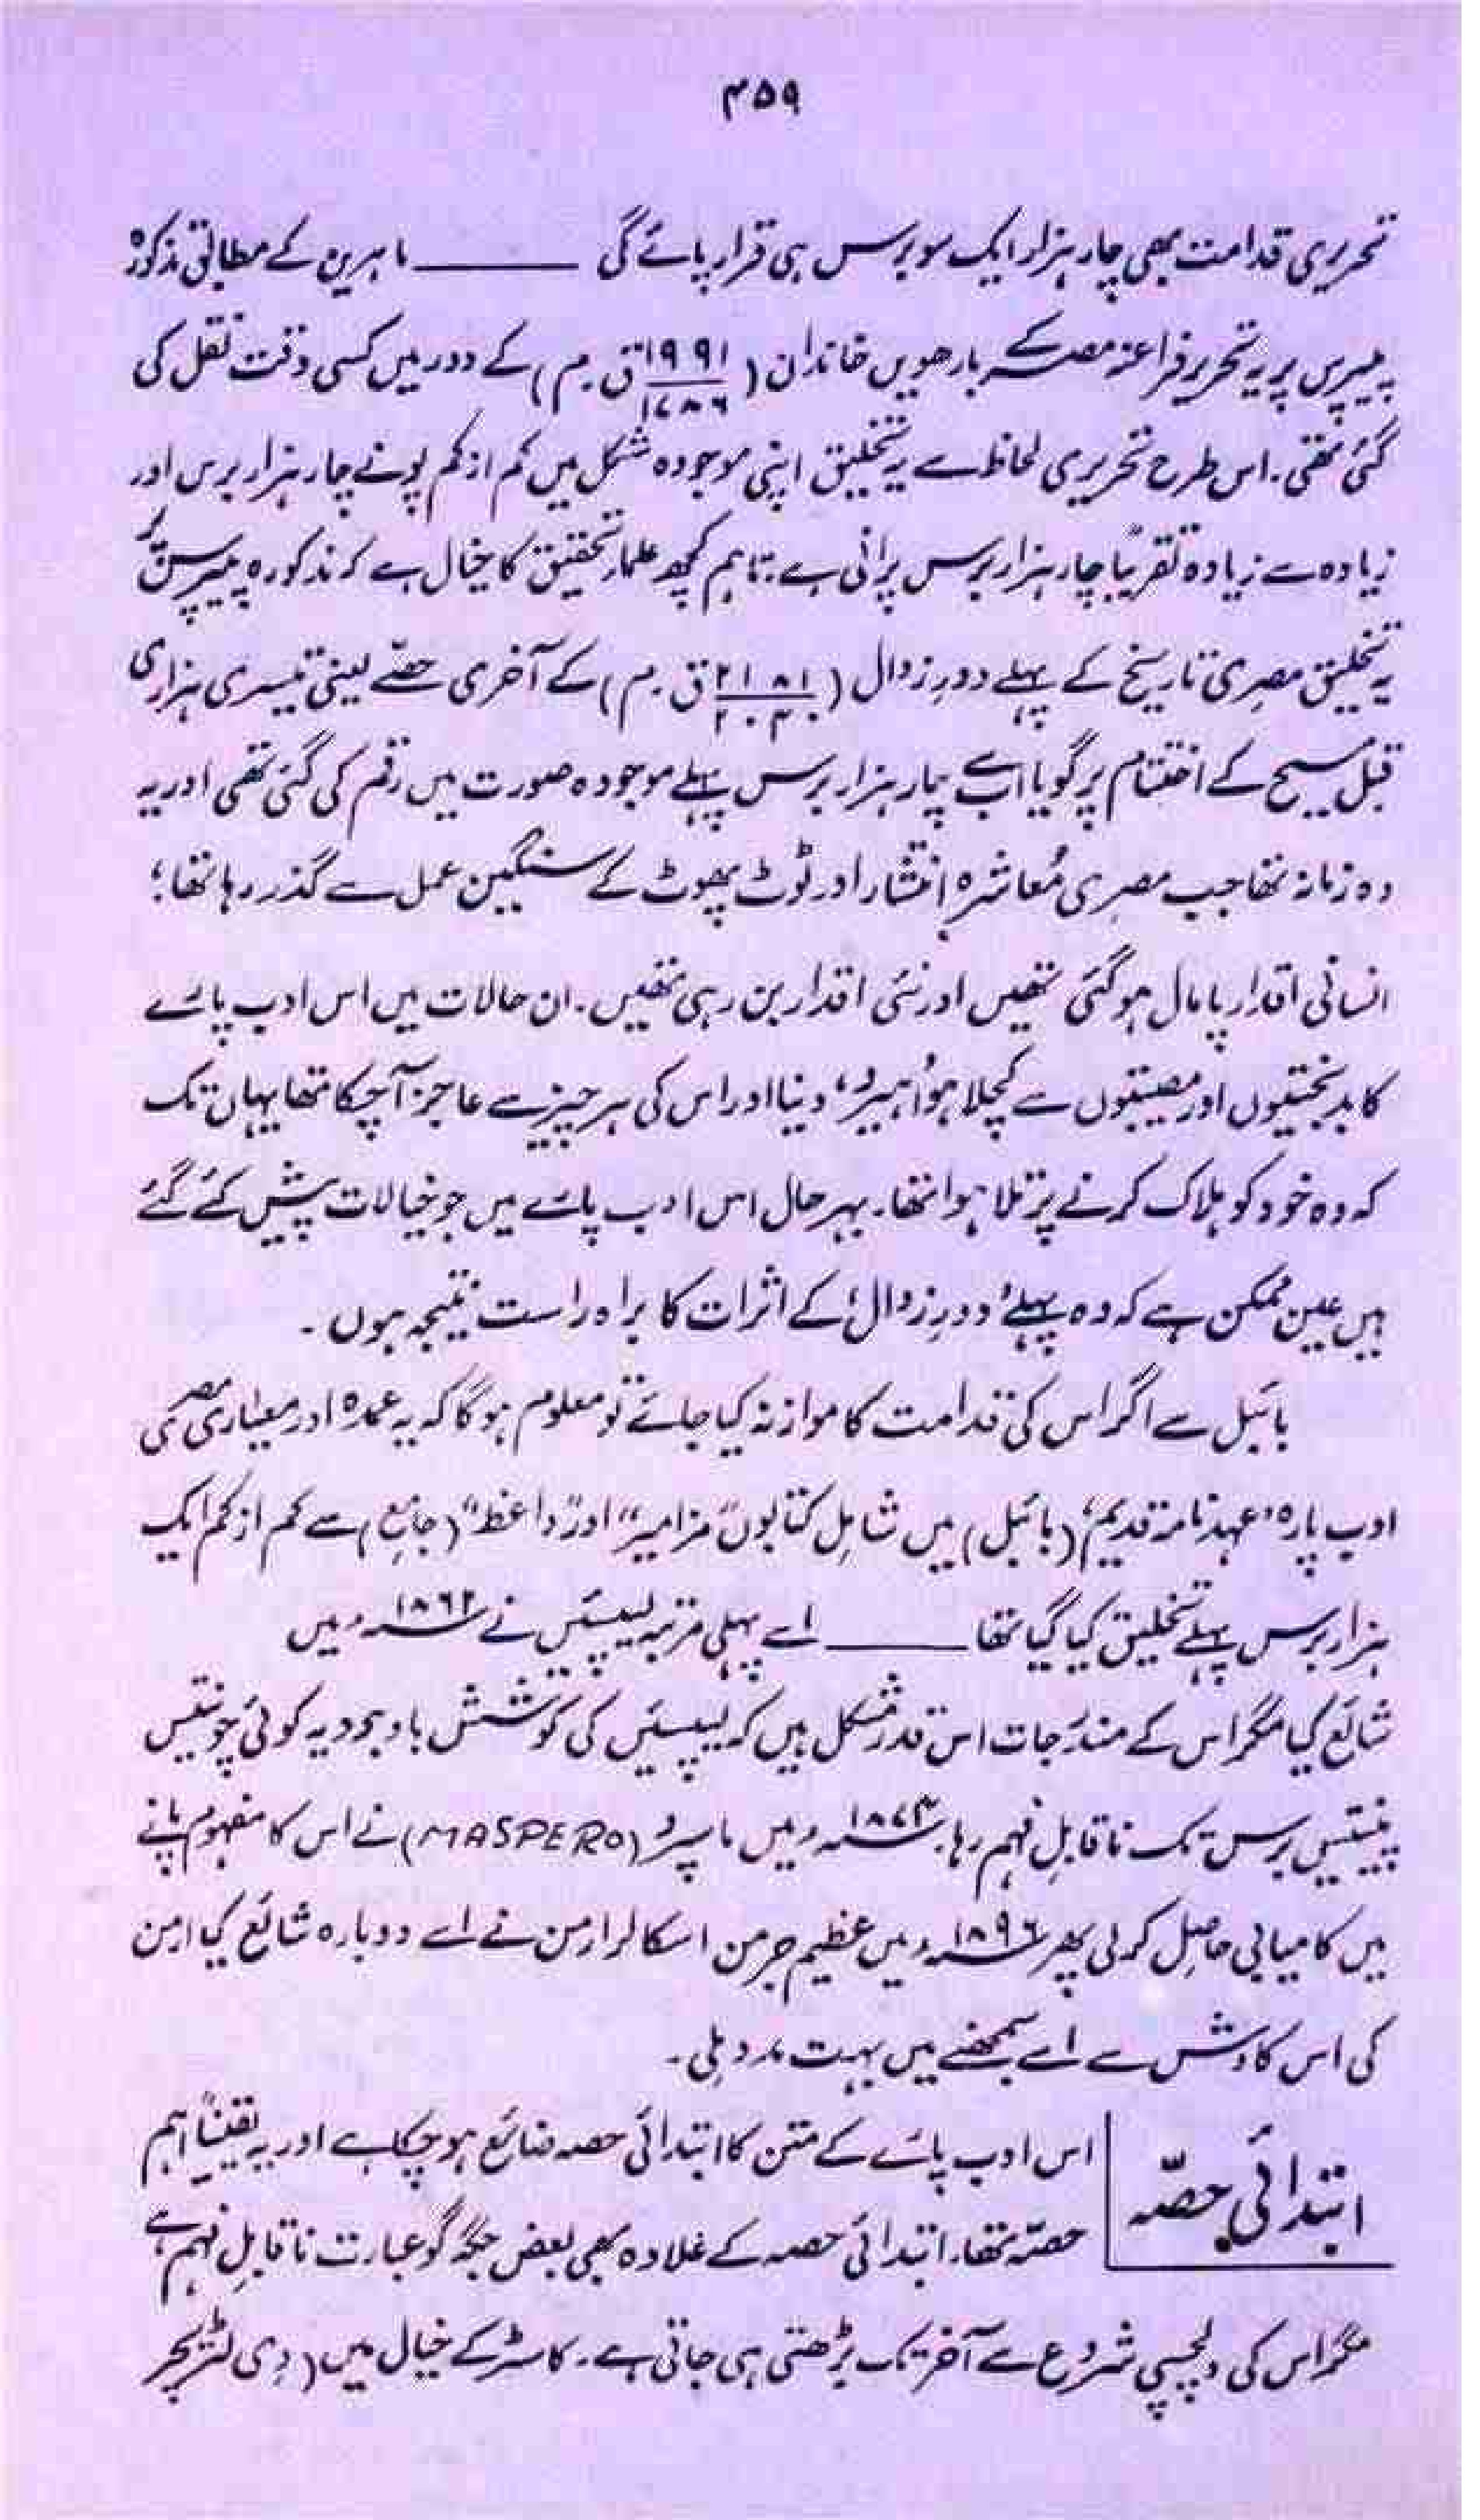 ۴۵۹
تحریری قدامت بھی چار ہزار ایک سو برس ہی قرار پائے گی ——— ماہرین کے مطابق مذکورہ
پیپرس پر یہ تحریر فراعنۂ مصر کے بارھویں خاندان (۱۹۹۱/۱۷۸۶ ق.م) کے دور میں کسی وقت نقل کی
گئی تھی۔ اس طرح تحریری لحاظ سے یہ تخلیق اپنی موجودہ شکل میں کم از کم پونے چار ہزار برس اور
زیادہ سے زیادہ تقریباً چار ہزار برس پرانی ہے۔ تاہم کچھ علماء تحقیق کا خیال ہے کہ مذکورہ پیپرس پر
یہ تخلیق مصری تاریخ کے پہلے دورِ زوال (۲۱۸۱/۲۰۴۰ ق.م) کے آخری حصّے لینی تیسری ہزاری
قبل مسیح کے اختتام پر گویا اب سے چار ہزار برس پہلے موجودہ صورت میں رقم کی گئی تھی اور یہ
وہ زمانہ تھا جب مصری مُعاشرہ انتشار اور ٹوٹ پھوٹ کے سنگین عمل سے گذر رہا تھا؛
انسانی اقدار پامال ہو گئی تھیں اور نئی اقدار بن رہی تھیں۔ ان حالات میں اس ادب پارے
کا بدبختیوں اور مصیبتوں سے کچلا ہوُا ہیرو، دنیا اور اس کی ہر چیز سے عاجز آچکا تھا یہاں تک
کہ وہ خود کو ہلاک کرنے پر تلا ہوا تھا۔ بہر حال اس ادب پارے میں جو خیالات پیش کئے گئے
ہیں عین ممکن ہے کہ وہ پہلے ’دورِ زوال‘ کے اثرات کا براہ راست نتیجہ ہوں۔
بائبل سے اگر اس کی قدامت کا موازنہ کیا جائے تو معلوم ہوگا کہ یہ عمدہ اور معیاری مصری
ادب پارہ ’عہد نامہ قدیم‘ (بائبل) میں شامِل کتابوں ”مزامیر“ اور ”واعظ“ (جامِع) سے کم از کم ایک
ہزار برس پہلے تخلیق کیا گیا تھا ——— اسے پہلی مرتبہ لیپسیئس نے ۱۸۶۲ء میں
شائع کیا مگر اس کے مندرَجات اس قدر مشکل ہیں کہ لیپسیئس کی کوشش باوجود یہ کوئی چونتیس
پینتیس برس تک ناقابلِ فہم رہا۔ ۱۸۷۴ء میں ماسپرو (MASPERO) نے اس کا مفہوم پانے
میں کامیابی حاصِل کرلی پھر ۱۸۹۶ء میں عظیم جرمن اسکالر ارمن نے اسے دوبارہ شائع کیا ارمن
کی اس کاوش سے اسے سمجھنے میں بہت مدد ملی۔
ابتدائی حصّہ
اس ادب پارے کے متن کا ابتدائی حصہ ضائع ہو چکا ہے اور یہ یقیناً اہم
حصّہ تھا۔ ابتدائی حصہ کے علاوہ بھی بعض جگہ گو عبارت ناقابلِ فہم ہے
مگر اس کی دلچسپی شروع سے آخر تک بڑھتی ہی جاتی ہے۔ کاسٹر کے خیال میں (دِی لٹریچر